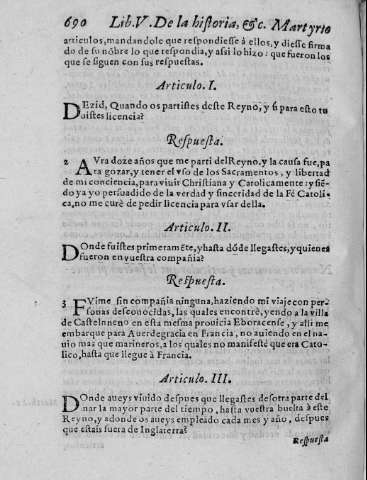 690 Lib. V. De la historia, &c. Martyrio
articulos, mandandole que respondiesse à ellos, y diesse firma
do de su nõbre lo que respondia, y assi lo hizo: que fueron los
que se siguen con sus respuestas.
Articulo. I.
DEzid, Quando os partistes deste Reyno, y si para esto tu
uistes licencia?
Respuesta.
2 AVra doze años que me parti del Reyno, y la causa fue, pa
ra gozar, y tener el vso de los Sacramentos, y libertad
de mi conciencia, para viuir Christiana y Catolicamente: y siẽ-
do ya yo persuadido de la verdad y sinceridad de la Fé Catoli-
ca, no me curè de pedir licencia para vsar della.
Articulo. II.
DOnde fuistes primeramẽte, y hasta dõde llegastes, y quienes
fueron en vuestra compañia?
Respuesta.
3 FVime sin compañia ninguna, haziendo mi viaje con per-
sonas desconocidas, las quales encontrè, yendo a la villa
de Castelnneno en esta mesma prouicia Eboracense, y alli me
embarque para Auerdegracia en Francia, no auiendo en el na-
uio mas que marineros, a los quales no manifestè que era Cato-
lico, hasta que lleguè à Francia.
Articulo. III.
DOnde aueys viuido despues que llegastes desotra parte del
mar la mayor parte del tiempo, hasta vuestra buelta à este
Reyno, y adonde os aueys empleado cada mes y año, despues
que estais fuera de Inglaterra?
Respuesta